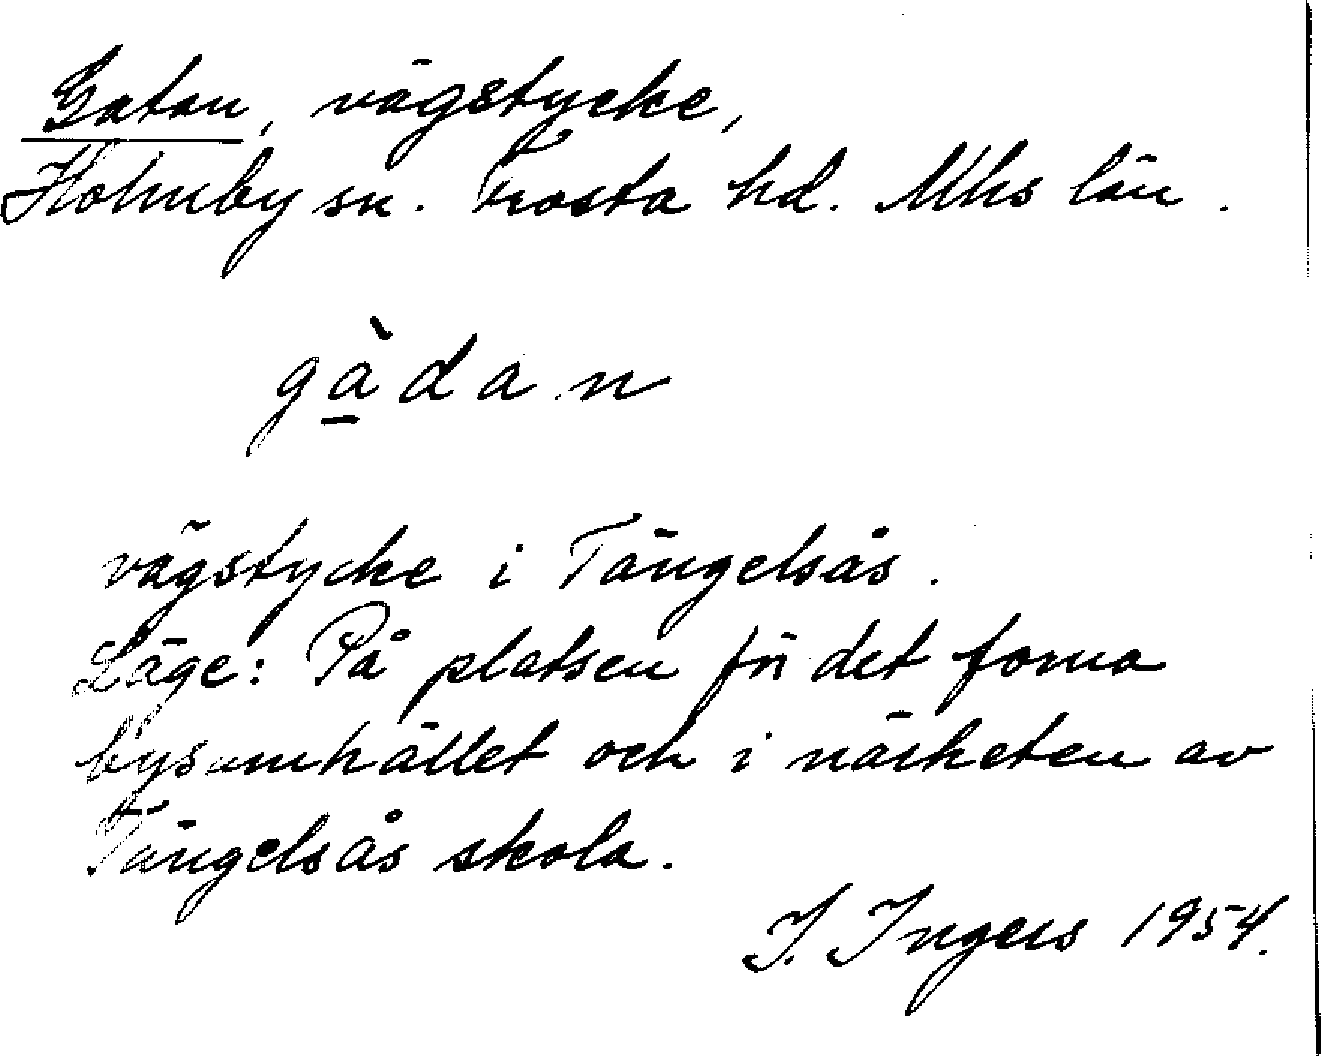 Gatan, vägstycke,
Holmby sn. Frosta hd. Mhs län.
gà̱dan
vägstycke i Tängelsås.
Läge: På platsen för det forna
bysamhället och i närheten av
Tängelsås skola.
I. Ingers 1954.